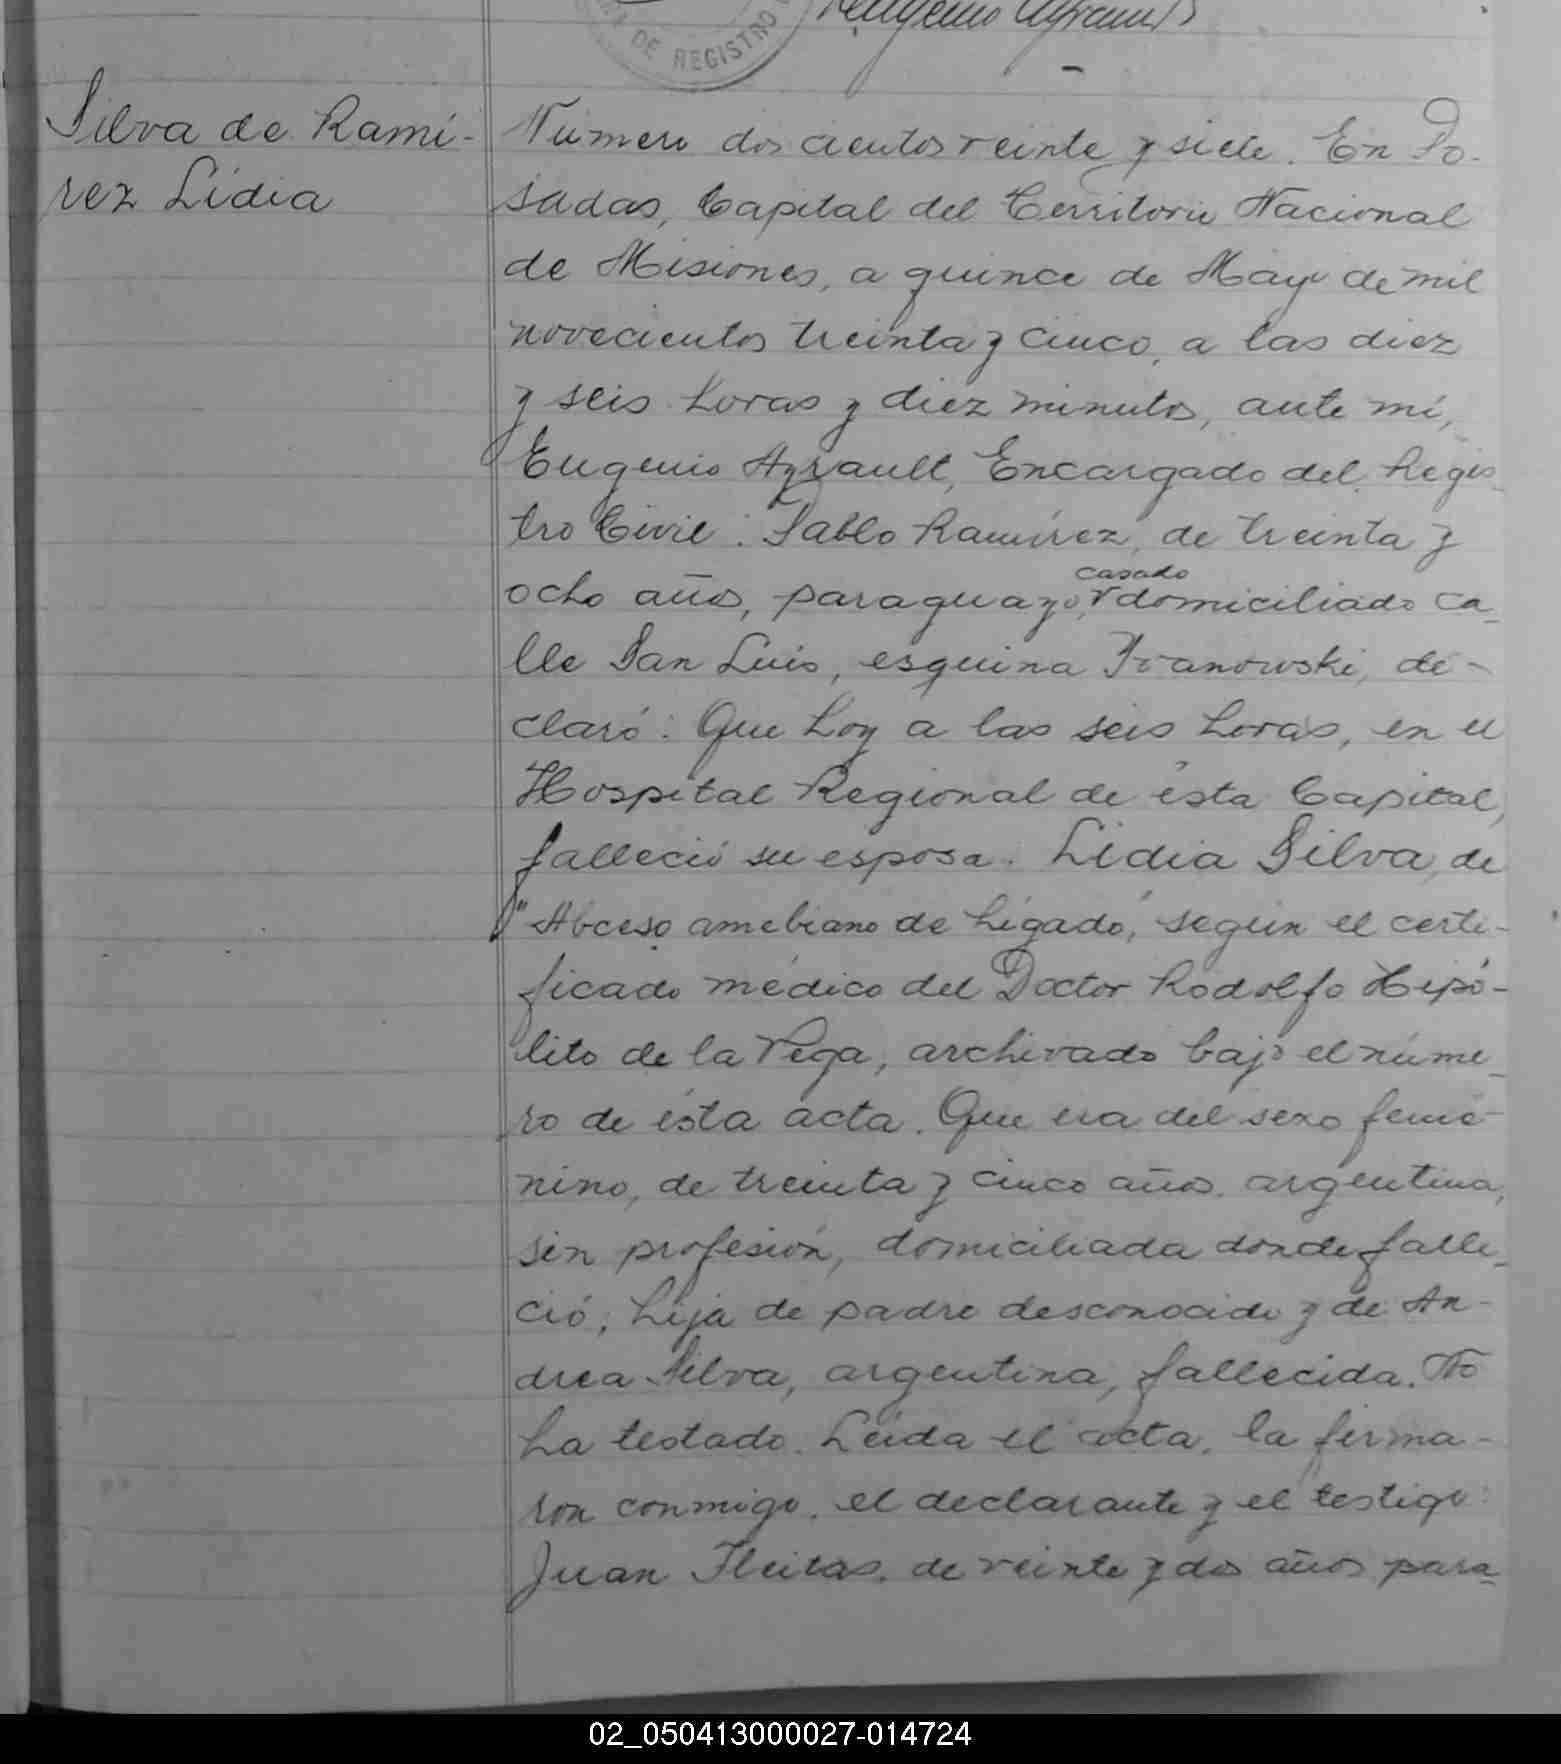 DE REGISTRO
Silva de Rami-
rez Lidia
Número dos cientos veinte y siete. En Po-
sadas, Capital del Territorio Nacional
de Misiones, a quince de Mayo de mil
novecientos treinta y cinco, a las diez
y seis horas y diez minutos, ante mí,
Eugenio Ayrault, Encargado del Regis-
tro Civil: Pablo Ramírez, de treinta y
casado
ocho años, paraguayo, domiciliado ca-
lle San Luis, esquina Ivanowski, de-
claró: Que hoy a las seis horas, en el
Hospital Regional de ésta Capital,
falleció su esposa: Lidia Silva, de
"Abceso amebiano de hígado", según el certi-
ficado médico del Doctor Rodolfo Hipó-
lito de la Vega, archivado bajo el núme-
ro de ésta acta. Que era del sexo feme-
nino, de treinta y cinco años, argentina,
sin profesión, domiciliada donde falle-
ció; hija de padre desconocido y de An-
drea Silva, argentina, fallecida. No
ha testado. Leída el acta, la firma-
ron conmigo, el declarante y el testigo:
Juan Fleitas, de veinte y dos años para-
02_050413000027-014724